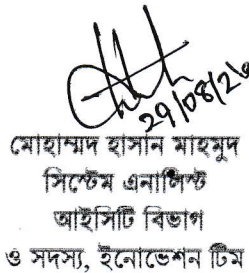 ২৯/০৮/২৬
মোহাম্মদ হাসান মাহমুদ
সিস্টেম এনালিস্ট
আইসিটি বিভাগ
ও সদস্য, ইনোভেশন টিম